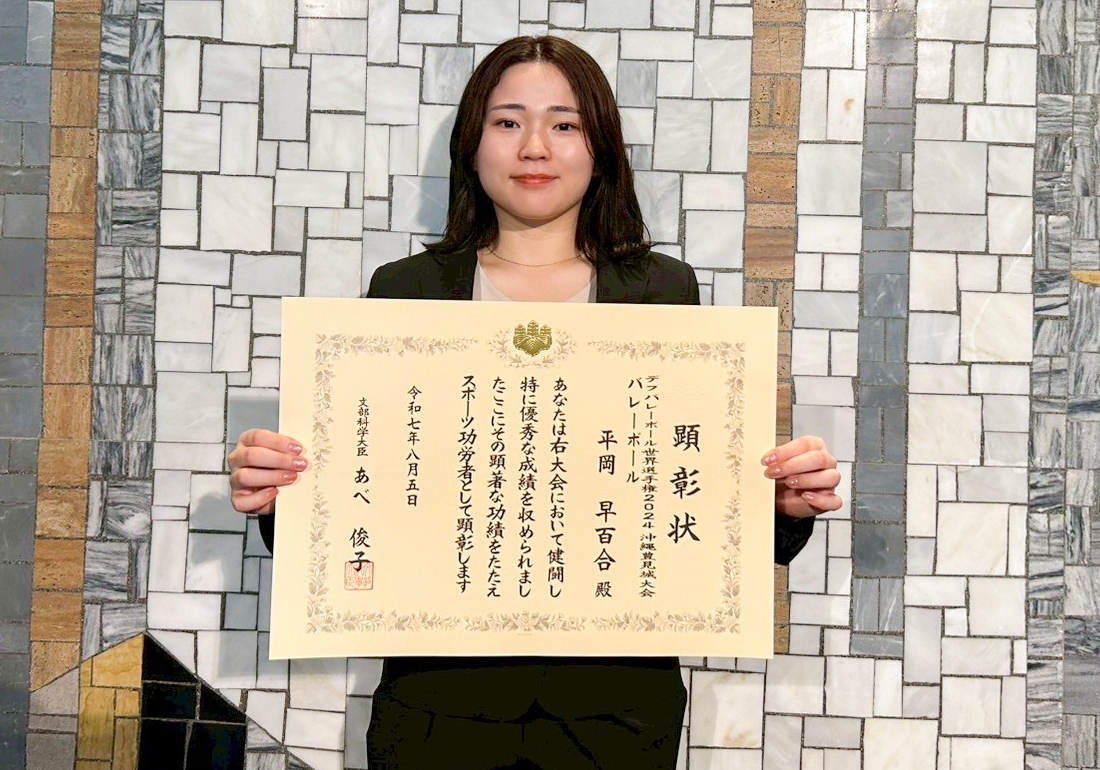 顕彰状
デフバレーボール世界選手権2024 沖縄豊見城大会
バレーボール
平岡 早百合 殿
あなたは右大会において健闘し
特に優秀な成績を収められまし
たここにその顕著な功績をたたえ
スポーツ功労者として顕彰します
令和七年八月五日
文部科学大臣 あべ 俊子